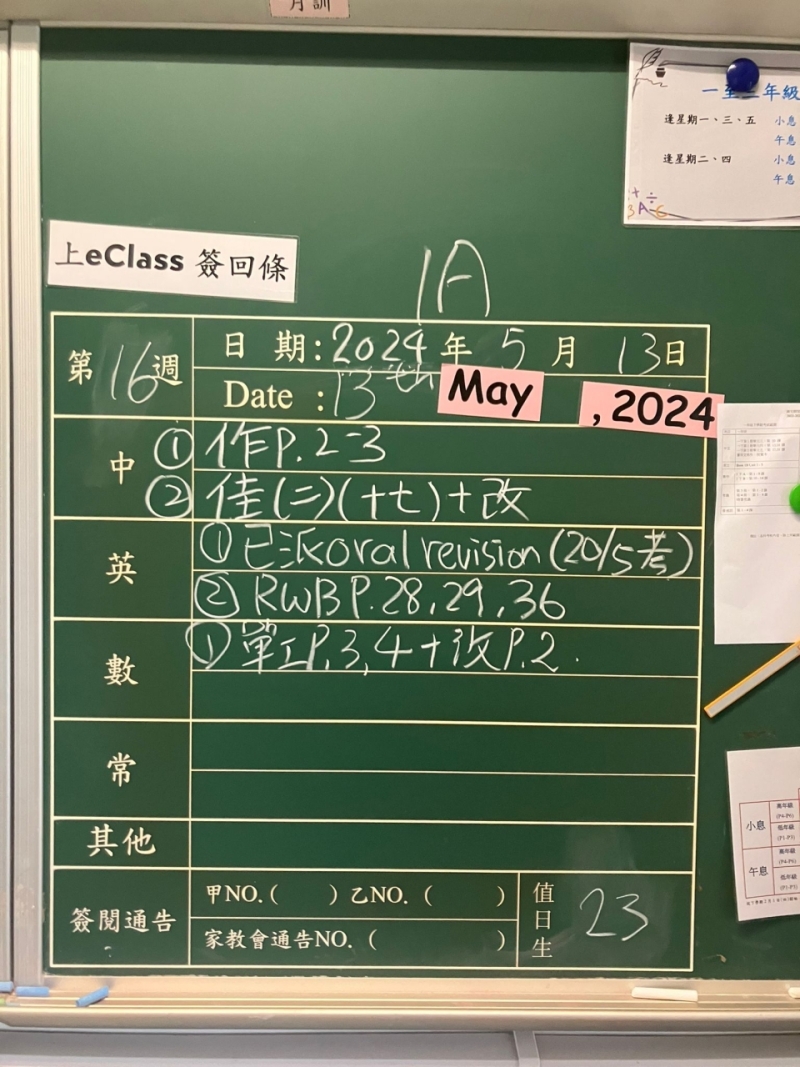 月訓
一至三年級
逢星期一、三、五 小息
午息
逢星期二、四 小息
午息
上eClass 簽回條
1A
第16週
日期:2024年5月13日
Date :13th May ,2024
中
①作P.2-3
②佳(二)(十七)+改
英
①已派oral revision(20/5考)
②RWB P.28,29,36
數
①單工P.3,4+改P.2.
常
其他
簽閱通告
甲NO.( ) 乙NO.( )
家教會通告NO.( )
值日生
23
小息
高年級
(P4-P6)
低年級
(P1-P3)
午息
高年級
(P4-P6)
低年級
(P1-P3)